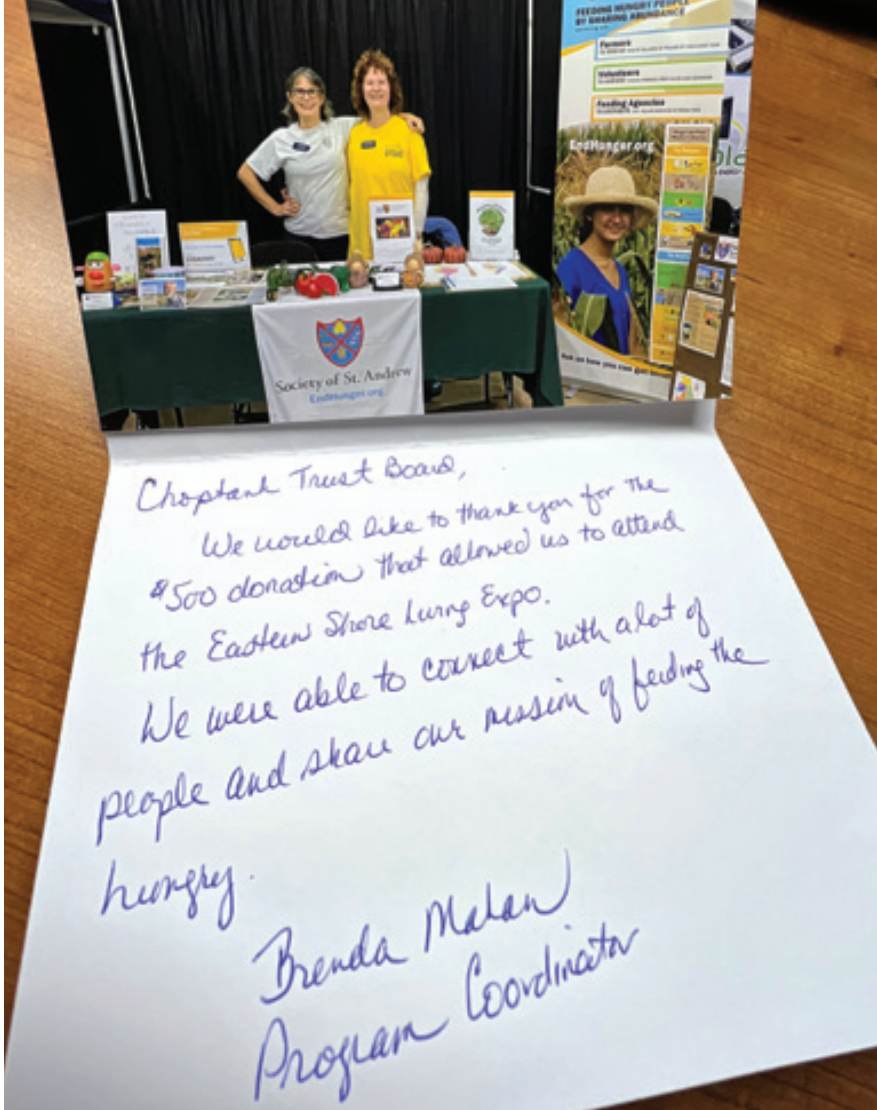 FEEDING HUNGRY PEOPLE
BY SHARING ABUNDANCE
Farmers
Volunteers
Feeding Agencies
EndHunger.org
Society of St. Andrew
EndHunger.org
Choptank Trust Board,
We would like to thank you for the
$500 donation that allowed us to attend
the Eastern Shore Living Expo.
We were able to connect with a lot of
people and share our mission of feeding the
hungry.
Brenda Mahan
Program Coordinator